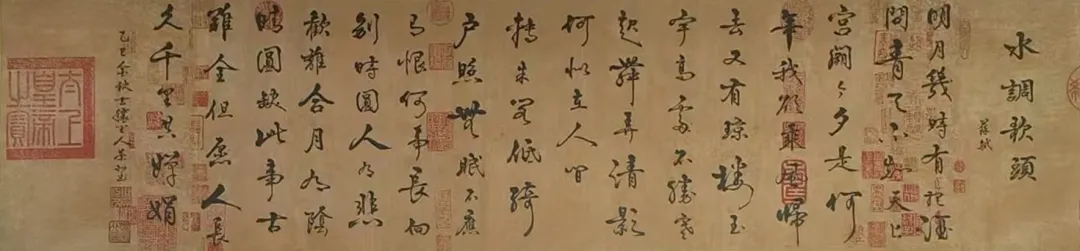 水調歌頭
蘇軾
明月幾時有把酒
問青天不知天上
宮闕今夕是何
年我欲乘風歸
去又有瓊樓玉
宇高處不勝寒
起舞弄清影
何似在人間
轉朱閣低綺
户照無眠不應
有恨何事長向
別時圓人有悲
歡離合月有陰
晴圓缺此事古
難全但願人長
久千里共嬋娟
乙巳年秋
太上皇帝之寶